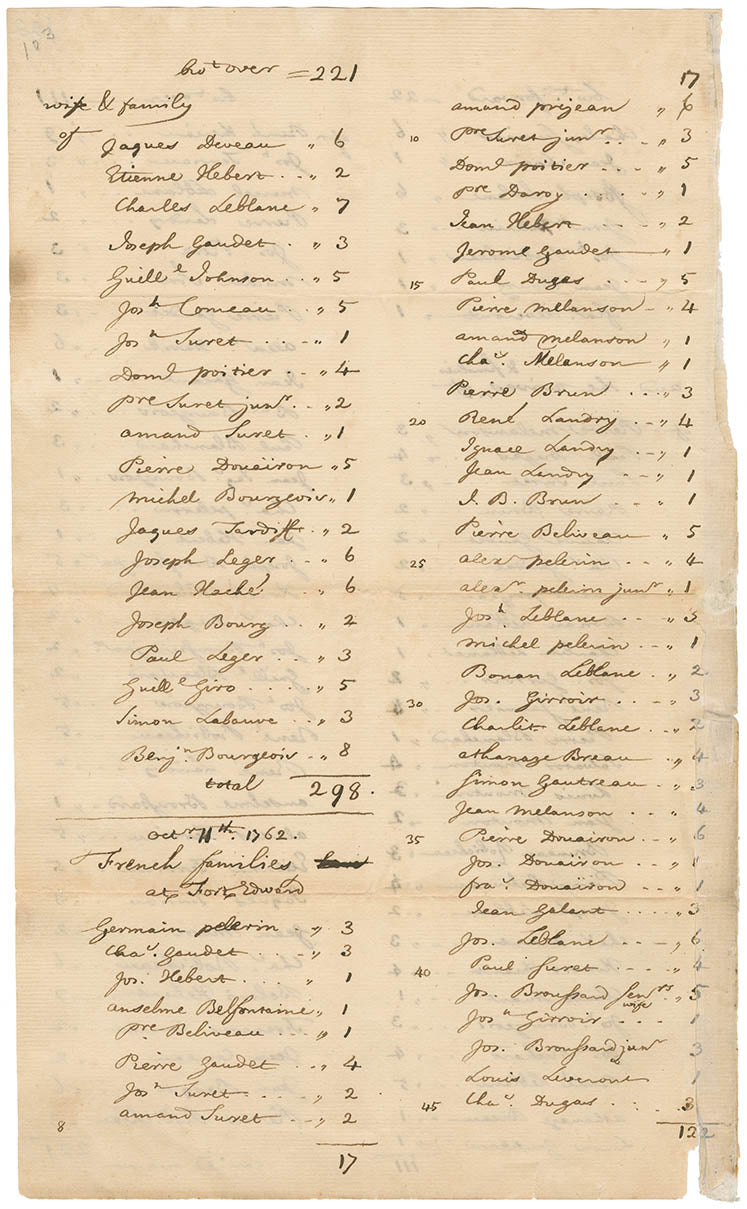 103
bro.t over = 221
wife & family
of Jaques Deveau " 6
Etienne Hebert . . " 2
Charles Leblanc " 7
Joseph Gaudet . " 3
Guill.e Johnson . . " 5
Jos.h Comeau . . " 5
Jos.h Suret . . . " 1
Dom.l poitier . . " 4
pre Suret jun.r . . " 2
amand Suret . " 1
Pierre Douäiron " 5
michel Bourgeois " 1
Jaques Tardiff . " 2
Joseph Leger . . " 6
Jean Haché . . " 6
Joseph Bourg . . " 2
Paul Leger . . " 3
Guill.e Giro . . . . " 5
Simon Labauve . . " 3
Benj.n Bourgeois . " 8
total 298.
Oct.r 11th. 1762.
French families
at Fort Edward
Germain pelerin . " 3
Cha.s Gaudet . . . " 3
Jos. Hebert . . . " 1
anselme Belfontaine " 1
pre Beliveau . . . " 1
Pierre Gaudet . . . " 4
Jos.h Suret . . . . " 2
8 amand Suret . . " 2
17
17
amand prejean " 6
10 pre Suret jun.r . . . " 3
Dom.l poitier . . . " 5
pre Daroy . . . . " 1
Jean Hebert . . . " 2
Jerome Gaudet " 1
15 Paul Dugas . . . " 5
Pierre melanson - " 4
amand melanson " 1
Cha.s Melanson " 1
Pierre Brun . . . " 3
20 René Landry . . " 4
Ignace Landry . . " 1
Jean Landry . . " 1
J. B. Brun . . . " 1
Pierre Beliveau " 5
25 alex.r pelerin . . . " 4
alex.r. pelerin jun.r " 1
Jos.h Leblanc . . " 3
michel pelerin . . " 1
Bonan Leblanc . " 2
30 Jos. Girroir . . . " 3
Charlit Leblanc . . " 2
athanaze Breau . . " 4
Simon Gautreau . . " 3
Jean Melanson . . " 4
35 Pierre Douairon . . " 6
Jos. Douäiron . . " 1
fra.s Douäiron . . " 1
Jean Galant . . . . " 3
Jos. Leblanc . . . " 6
40 Paul Suret . . . " 4
Jos. Broussard Sen.rs wife " 5
Jos.h Girroir . . . 1
Jos. Broussard jun.r 3
Louis Leveront 1
45 Cha.s Dugas . . . 3
122